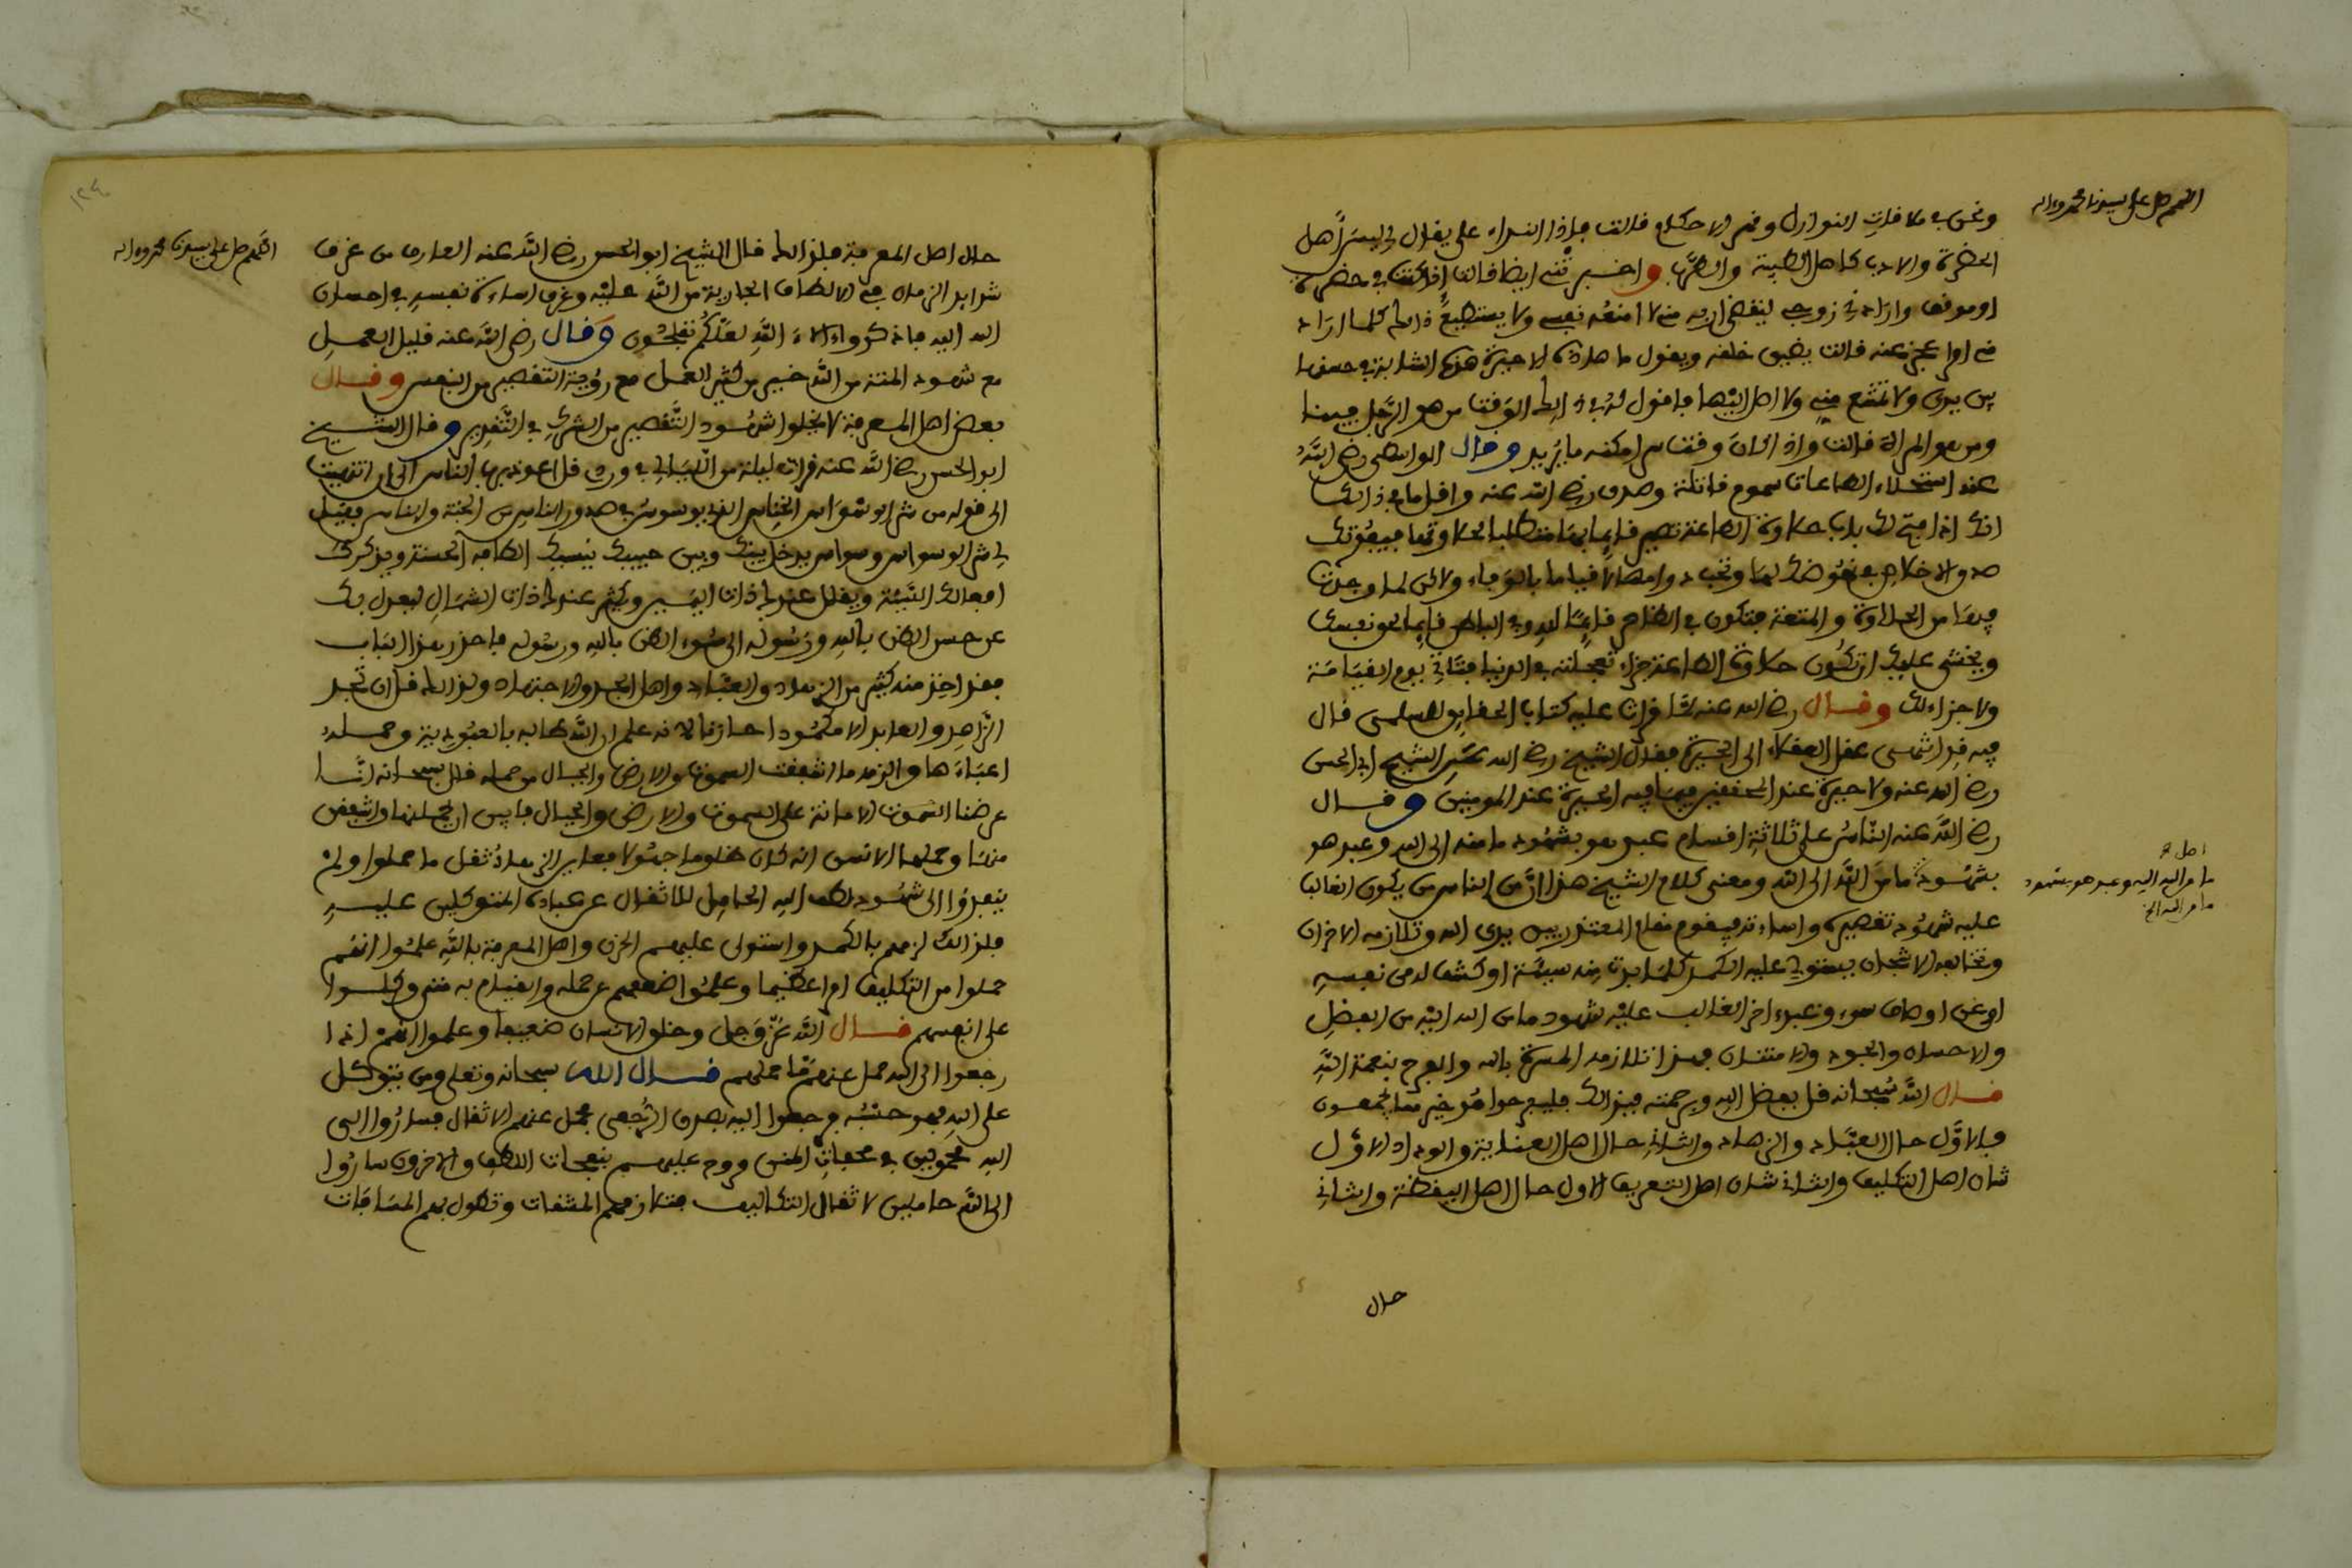 اللهم صل على سيدنا محمد وءاله
ونحن في ملاقات النوازل وقهر الاحكام قالت فاذا النداء على يقال لي ليس اهل
الحضرة والادب كاهل الطيبة والطرب واخبرتني ايضا قالت اذا كنت في حضرة
او موقف واراد مني زوجي ليقضي اربه مني لا امنعه نفسي ولا يستطيع ذلك كلما اراد
مني امرا عجز عنه قالت يضيق خلقه ويقول ما هذه الا حيرة هذه الشابة في حسنها
بين يدي ولا تمتنع مني ولا اصل اليها فاقول له في ذلك الوقت من هو الرجل فينا
ومن هو المراة قالت واذا كان وقت اخر امكنه ما يريد وقال الواسطي رضي الله
عنه استحلاء الطاعات سموم قاتلة وصدق رضي الله عنه واقل ما في ذلك
انك اذا فتح لك باب حلاوة الطاعة تصير قائما فيها متطلبا لحلاوتها فيفوتك
صدق الاخلاص في نهوضك لها وتحب دوامها لا قياما بالوفاء ولاكن لما وجدت
فيها من الحلاوة والمتعة فتكون في الظاهر قائما لله وفي الباطن قائما لحظ نفسك
ويخشى عليك ان تكون حلاوة الطاعة جزاء تعجلته في الدنيا فتاتي يوم القيامة
ولا جزاء لك وقال رضي الله عنه لما قرات عليه كتاب الحقايق للسلمي قال
فيه قد انتهى عقل العقلاء الى الحيرة فقال الشيخ رضي الله عنه الشيخ ابي الحسن
رضي الله عنه ولا حيرة عند المحققين فيما فيه الحيرة عند المومنين وقال
رضي الله عنه الناس على ثلاثة اقسام عبد هو بشهود ما منه الى الله وعبد هو
بشهود ما من الله الى الله ومعنى كلام الشيخ هذا ان من الناس من يكون الغالب
اصل
ما من الله اليه وعبد هو بشهود
ما من الله الخ
عليه شهود تقصيره واساءته فيقوم مقام المعتذر بين يدي الله وتلازمه الاحزان
وتحالفه الاشجان فيستولي عليه الكمد كلما بدت منه سيئة او كشف له من نفسه
او عن اوصاف سوء وعبد اخر الغالب عليه شهود ما من الله اليه من الفضل
والاحسان والجود والامتنان فهذا تلازمه المسرة بالله والفرح بنعمة الله
قال الله سبحانه قل بفضل الله وبرحمته فبذلك فليفرحوا هو خير مما يجمعون
فالاول حال العباد والزهاد والثاني حال اهل العناية والوداد الاول
شان اهل التكليف والثاني شان اهل التعريف الاول حال اهل اليقظة والثاني
حال
١٢٤
اللهم صل على سيدنا محمد وءاله
حال اهل المعرفة فلذلك قال الشيخ ابو الحسن رضي الله عنه العارف من عرف
شدايد الزمان في الالطاف الجارية من الله عليه وعرف اساءة نفسه في احسان
الله اليه فاذكروا ءالاء الله لعلكم تفلحون وقال رضي الله عنه قليل العمل
مع شهود المنة من الله خير من كثير العمل مع روية التقصير من النفس وقال
بعض اهل المعرفة لا يخلوا شهود التقصير من الشرك في التقدير وقال الشيخ
ابو الحسن رضي الله عنه قرات ليلة من الليالي في وردي قل اعوذ برب الناس الى ان انتهيت
الى قوله من شر الوسواس الخناس الذي يوسوس في صدور الناس من الجنة والناس فقيل
لي شر الوسواس وسواس يدخل بينك وبين حبيبك ينسيك الطافه الحسنة ويذكرك
افعالك السيئة ويقلل عندك ذات اليمين ويكثر عندك ذات الشمال ليعدل بك
عن حسن الظن بالله ورسوله الى سوء الظن بالله ورسوله فاحذر هذا الباب
فقد اخذ منه كثير من الزهاد والعباد واهل الجد والاجتهاد ولذلك قل ان تجد
الزاهد والعابد الا مكمودا حزنانا لانه علم ان الله طالبه بالعبودية وحمله
اعباءها والزمه ما اشفقت السموات والارض والجبال من حمله قال سبحانه انا
عرضنا الامانة على السموات والارض والجبال فابين ان يحملنها واشفقن
منها وحملها الانسان انه كان ظلوما جهولا فعاين الزهاد ثقل ما حملوا ولم
ينفذوا الى شهود لطف الله الحامل للاثقال عن عباده المتوكلين عليه
فلذلك لزمهم الكمد واستولى عليهم الحزن واهل المعرفة بالله علموا انهم
حملوا من التكليف امرا عظيما وعلموا ضعفهم عن حمله والقيام به متى وكلوا
على انفسهم قال الله عز وجل وخلق الانسان ضعيفا وعلموا انهم اذا
رجعوا الى الله حمل عنهم ما حملهم قال الله سبحانه وتعلى ومن يتوكل
على الله فهو حسبه فرجعوا اليه بصدق الرجعى فحمل عنهم الاثقال فساروا الى
الله محمولين في محفات المنن وروح عليهم بنفحات اللطف والاخرون ساروا
الى الله حاملين لاثقال التكاليف فتلازمهم المشقات وتطول بهم المسافات